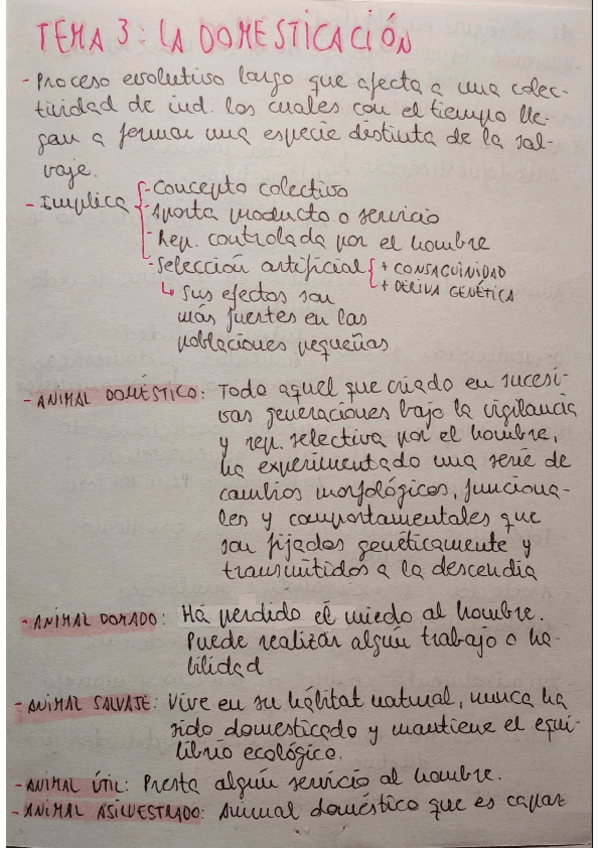 TEMA 3: LA DOMESTICACIÓN
- Proceso evolutivo largo que afecta a una colec-
tividad de ind. los cuales con el tiempo lle-
gan a formar una especie distinta de la sal-
vaje.
- Implica - Concepto colectivo
- Aporta producto o servicio
- Rep. controlada por el hombre
- Selección artificial + CONSAGUINIDAD
+ DERIVA GENÉTICA
↳ Sus efectos son
más fuertes en las
poblaciones pequeñas
- ANIMAL DOMÉSTICO: Todo aquel que criado en sucesi-
vas generaciones bajo la vigilancia
y rep. selectiva por el hombre,
ha experimentado una serie de
cambios morfológicos, funciona-
les y comportamentales que
son fijados genéticamente y
transmitidos a la descendia
- ANIMAL DOMADO: Há perdido el miedo al hombre.
Puede realizar algún trabajo o ha-
bilidad
- ANIMAL SALVAJE: Vive en su hábitat natural, nunca ha
sido domesticado y mantiene el equi-
librio ecológico.
- ANIMAL ÚTIL: Presta algún servicio al hombre.
- ANIMAL ASILVESTRADO: Animal doméstico que es capaz